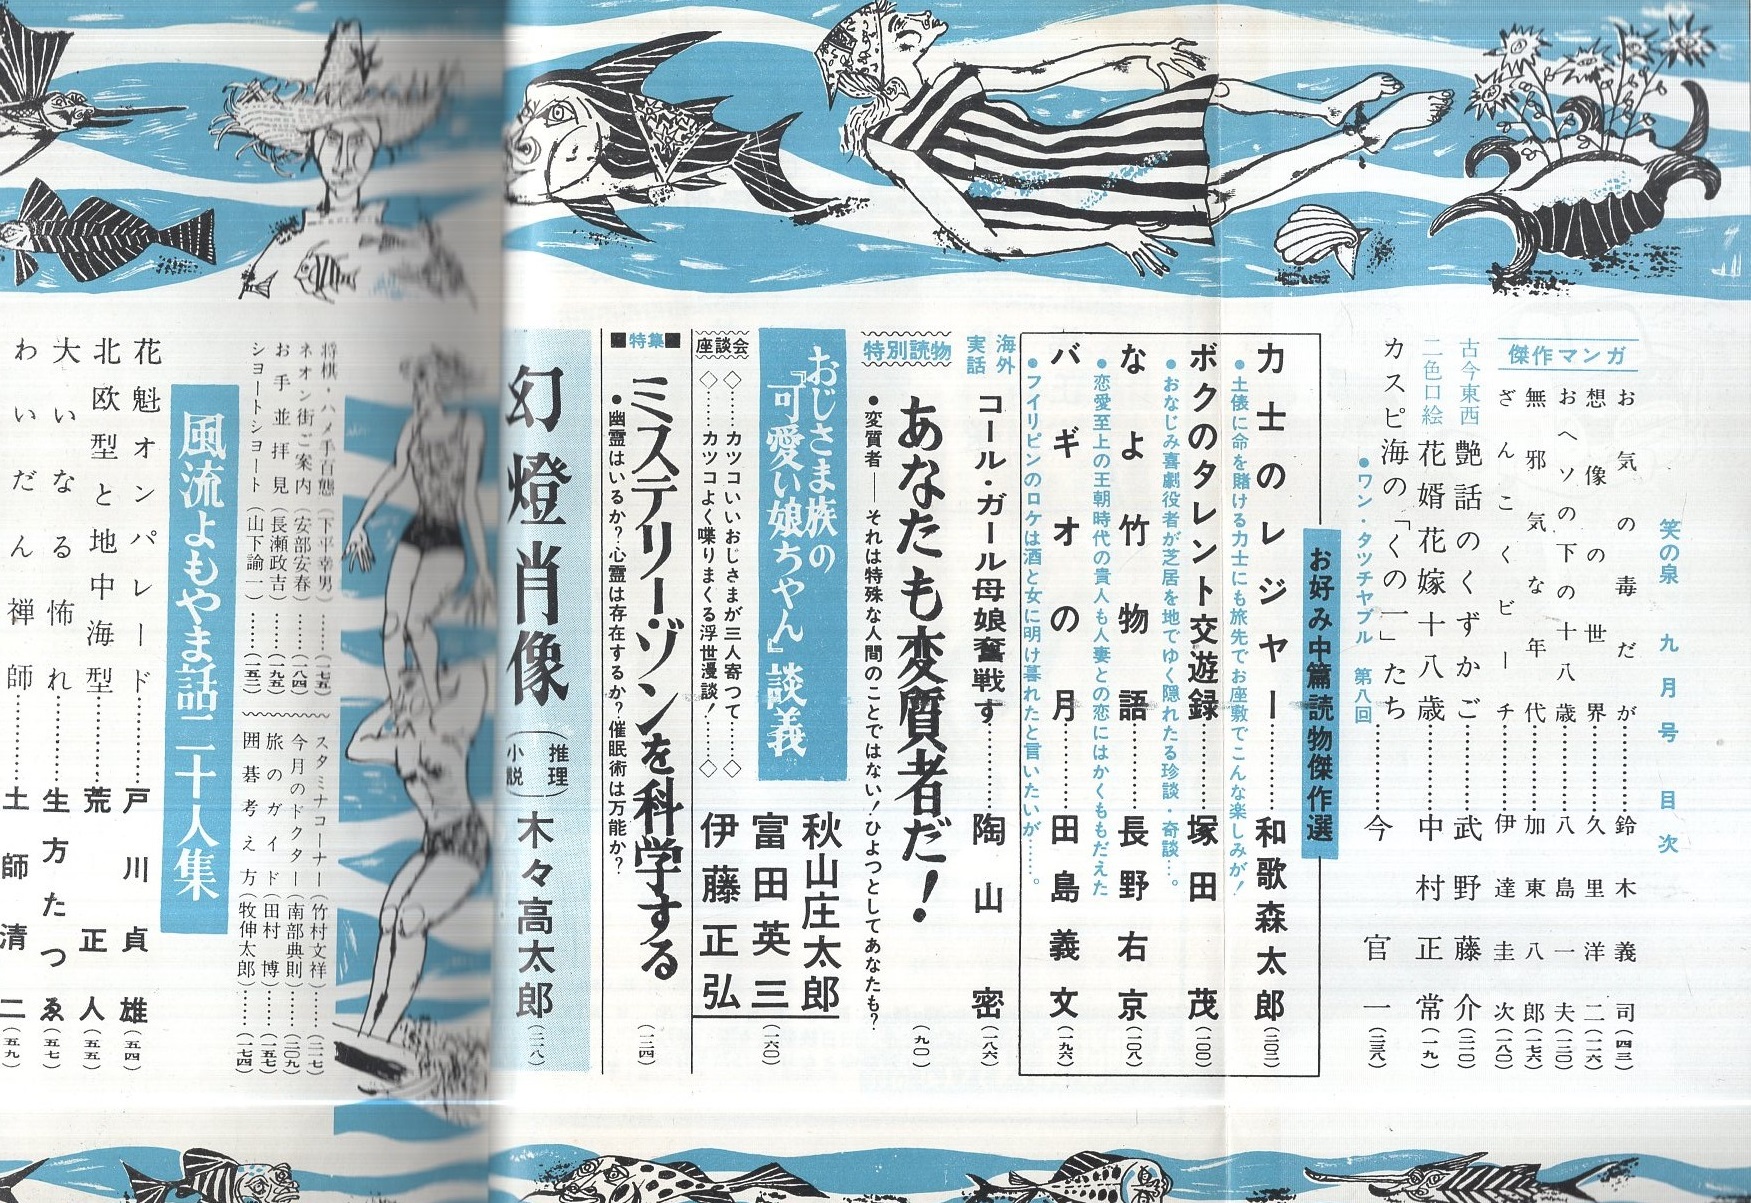 笑の泉 九月号 目次
傑作マンガ
お気の毒だが………鈴木義司(四三)
想像の世界………久里洋二(二一六)
おヘソの下の十八歳………八島一夫(一三〇)
無邪気な年代………加東八郎(一七六)
ざんこくビーチ………伊達圭次(一八〇)
古今東西
艶話のくずかご………武野藤介(二二〇)
二色口絵
花婿花嫁十八歳………中村正常(一九)
カスピ海の「くの一」たち………今官一(二三八)
●ワン・タツチヤブル 第八回
お好み中篇読物傑作選
力士のレジヤー………和歌森太郎(二〇二)
●土俵に命を賭ける力士にも旅先でお座敷でこんな楽しみが!
ボクのタレント交遊録………塚田茂(一〇〇)
●おなじみ喜劇役者が芝居を地でゆく隠れたる珍談・奇談…。
なよ竹物語………長野右京(一〇八)
●恋愛至上の王朝時代の貴人も人妻との恋にはかくももだえた
バギオの月………田島義文(一九六)
●フイリピンのロケは酒と女に明け暮れたと言いたいが……。
海外実話
コール・ガール母娘奮戦す………陶山密(一八六)
特別読物
あなたも変質者だ!(九〇)
●変質者―それは特殊な人間のことではない!ひよつとしてあなたも?
おじさま族の『可愛い娘ちやん』談義
秋山庄太郎
富田英三(一六〇)
伊藤正弘
座談会
◇……カツコいいおじさまが三人寄つて……◇
◇……カツコよく喋りまくる浮世漫談!……◇
■特集■
ミステリー・ゾンを科学する(一二四)
●幽霊はいるか?心霊は存在するか?催眠術は万能か?
幻燈肖像(推理小説)木々高太郎(二二八)
将棋・ハメ手百態(下平幸男)……(一七五)
ネオン街ご案内(安部安春)……(一八四)
お手並拝見(長瀬政吉)……(一九五)
シヨートシヨート(山下諭一)……(一五三)
スタミナコーナー(竹村文祥)……(二一七)
今月のドクター(南部典則)……(二〇九)
旅のガイド(田村博)……(一五七)
囲碁考え方(牧伸太郎)……(一七四)
風流よもやま話二十人集
花魁オンパレード………戸川貞雄(五四)
北欧型と地中海型………荒正人(五五)
大いなる怖れ………生方たつゑ(五七)
わいだん禅師………土師清二(五九)